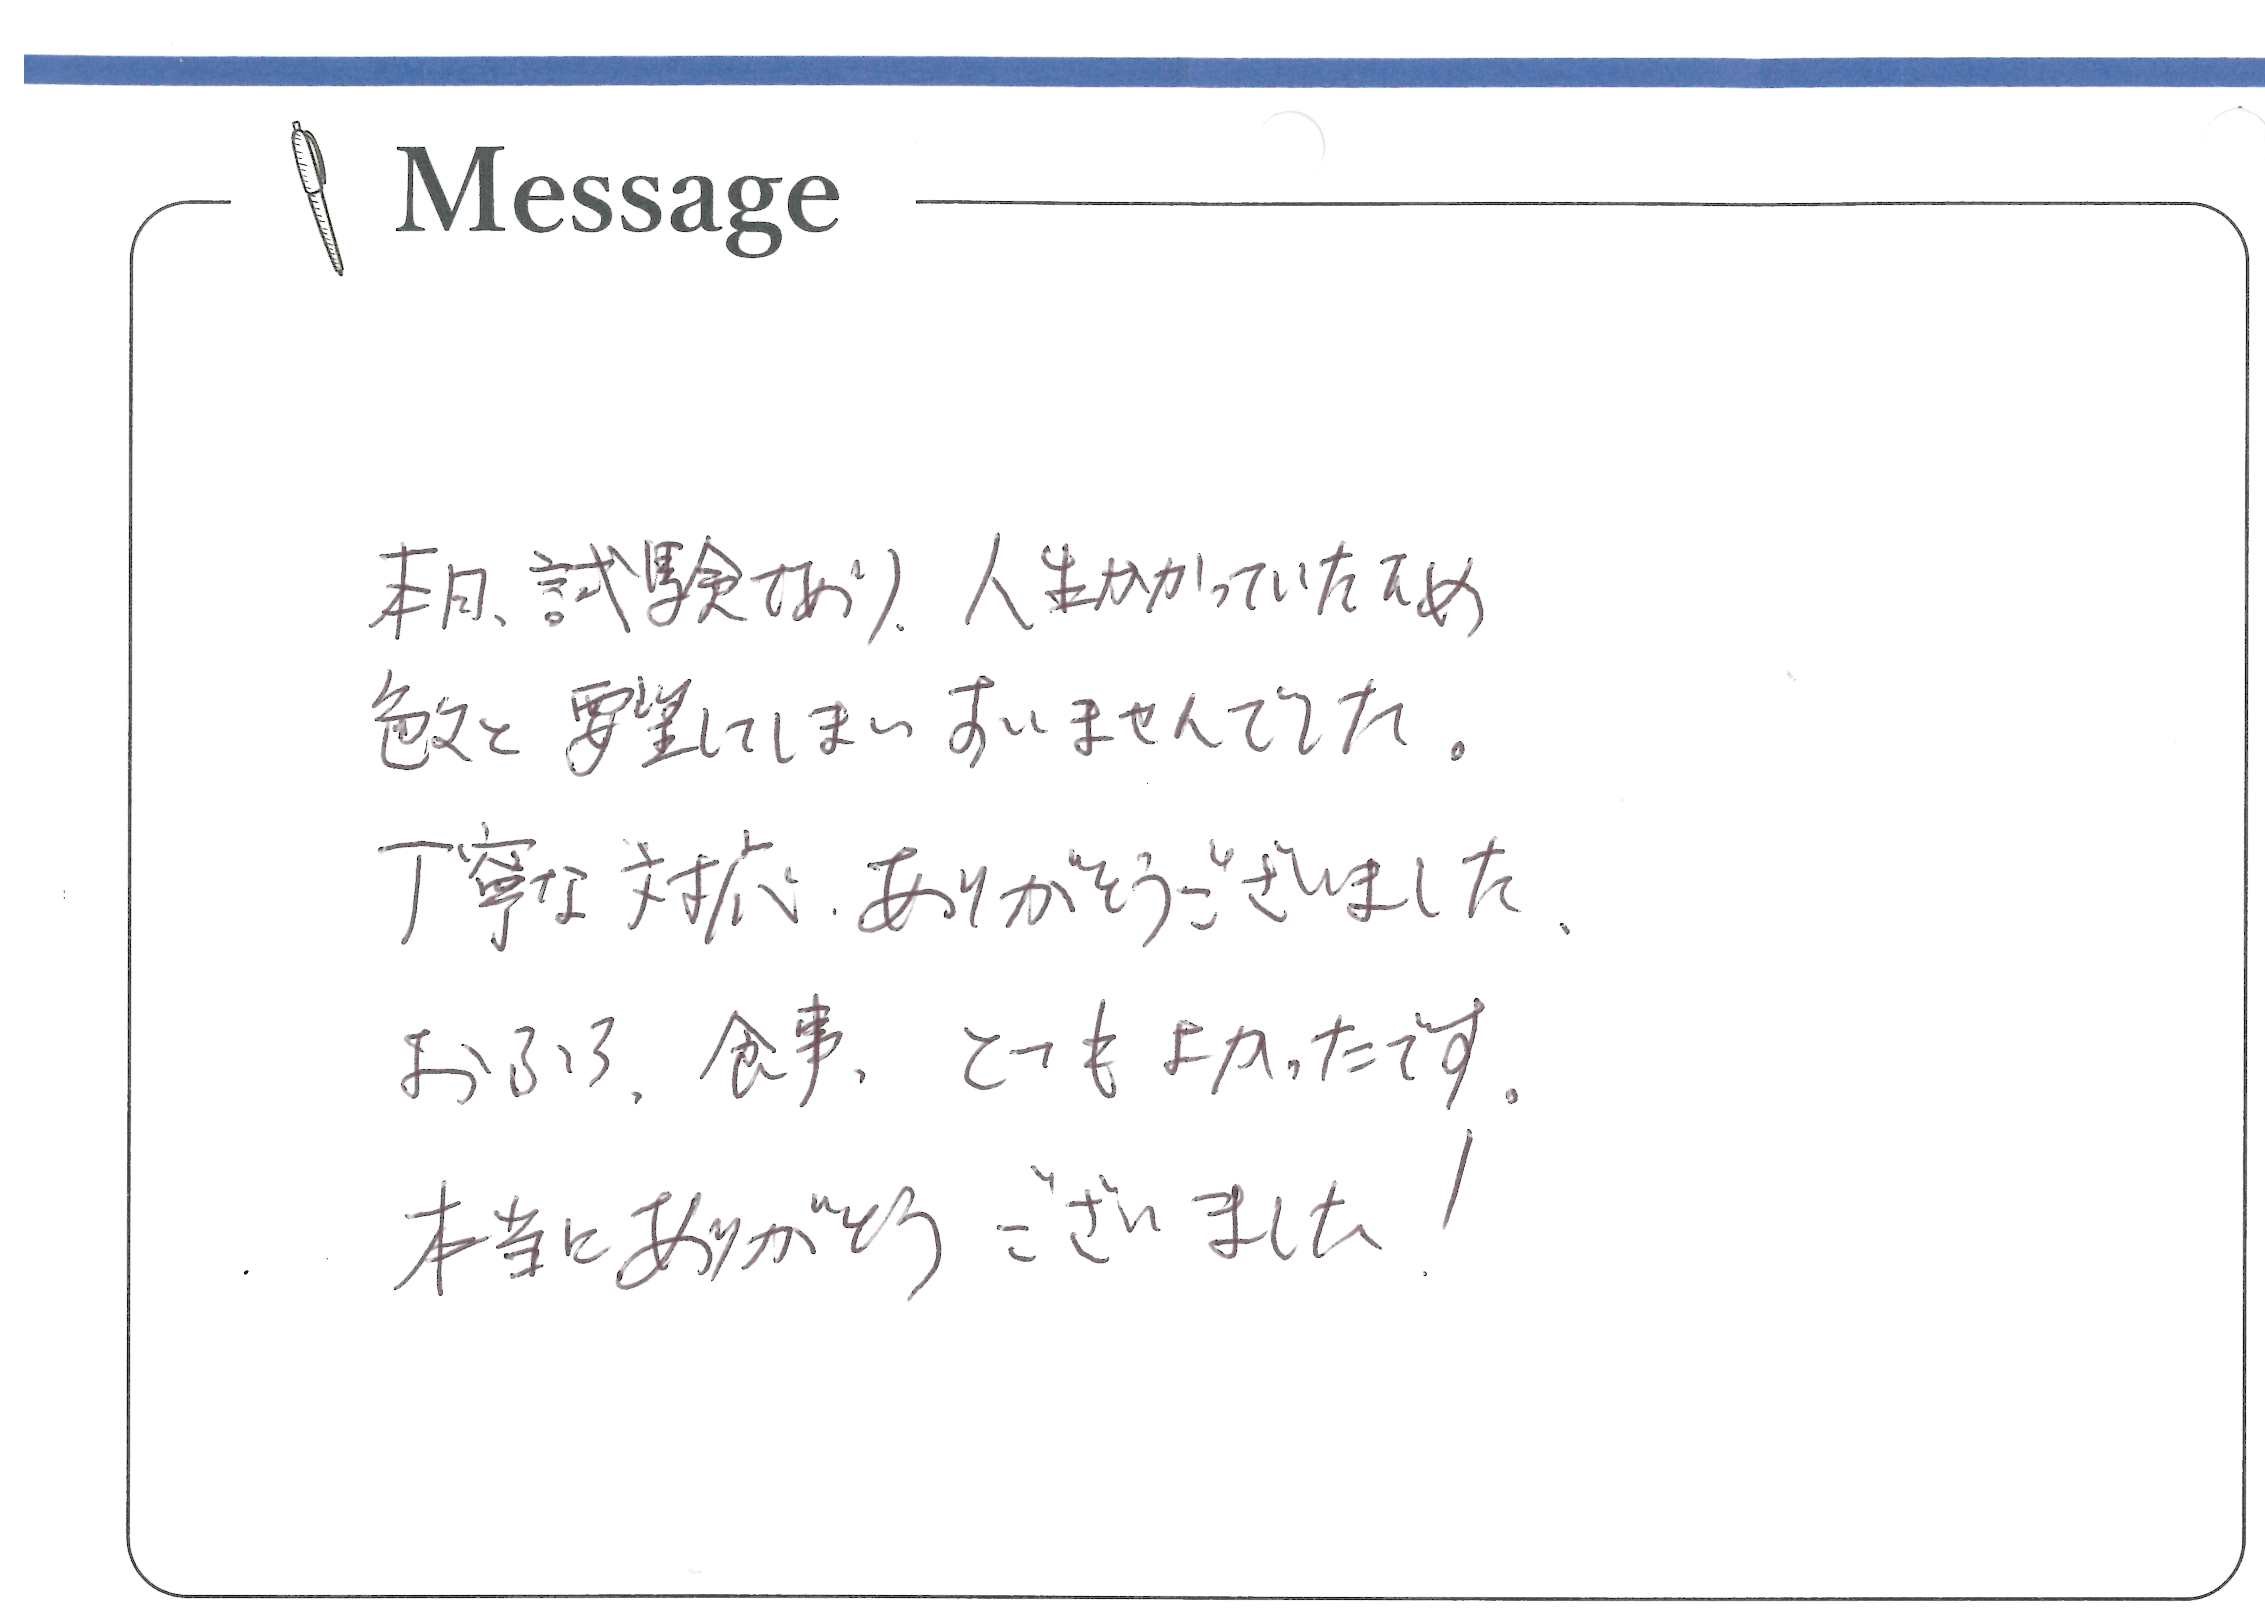 Message
本日、試験があり、人生かかっていたため
色々と要望してしまいすいませんでした。
丁寧な対応、ありがとうございました、
おふろ、食事、とてもよかったです。
本当にありがとうございました!